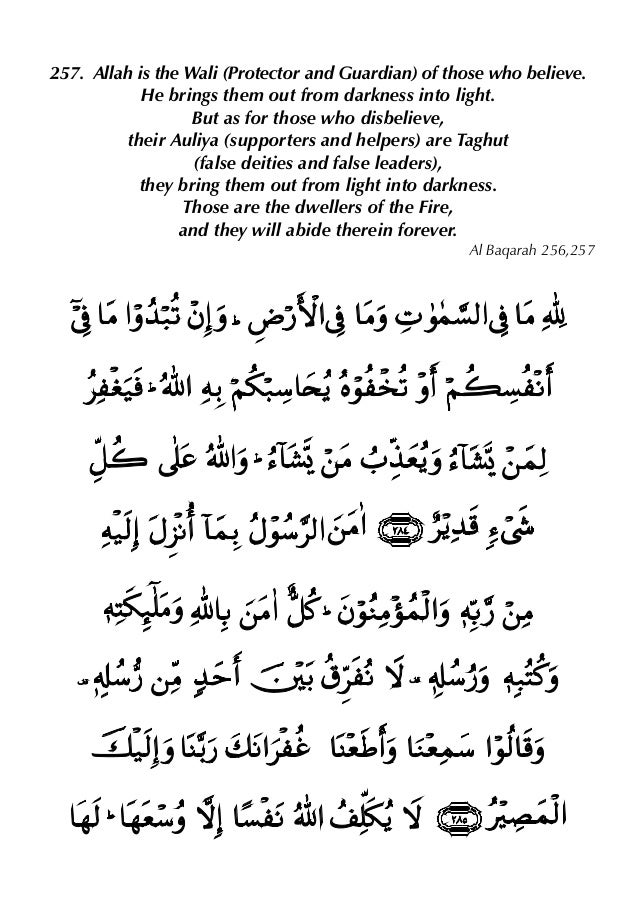 257. Allah is the Wali (Protector and Guardian) of those who believe.
He brings them out from darkness into light.
But as for those who disbelieve,
their Auliya (supporters and helpers) are Taghut
(false deities and false leaders),
they bring them out from light into darkness.
Those are the dwellers of the Fire,
and they will abide therein forever.
Al Baqarah 256,257
لِلّٰهِ مَا فِى السَّمٰوٰتِ وَمَا فِى الْاَرْضِ ؕ وَاِنْ تُبْدُوْا مَا فِىْۤ
اَنْفُسِكُمْ اَوْ تُخْفُوْهُ يُحَاسِبْكُمْ بِهِ اللّٰهُ ؕ فَيَغْفِرُ
لِمَنْ يَّشَآءُ وَيُعَذِّبُ مَنْ يَّشَآءُ ؕ وَاللّٰهُ عَلٰى كُلِّ
شَىْءٍ قَدِيْرٌ ﴿٢٨٤﴾ اٰمَنَ الرَّسُوْلُ بِمَاۤ اُنْزِلَ اِلَيْهِ
مِنْ رَّبِّهٖ وَالْمُؤْمِنُوْنَ ؕ كُلٌّ اٰمَنَ بِاللّٰهِ وَمَلٰٓئِكَتِهٖ
وَكُتُبِهٖ وَرُسُلِهٖ ۟ لَا نُفَرِّقُ بَيْنَ اَحَدٍ مِّنْ رُّسُلِهٖ ۟
وَقَالُوْا سَمِعْنَا وَاَطَعْنَا غُفْرَانَكَ رَبَّنَا وَاِلَيْكَ
الْمَصِيْرُ ﴿٢٨٥﴾ لَا يُكَلِّفُ اللّٰهُ نَفْسًا اِلَّا وُسْعَهَا ؕ لَهَا